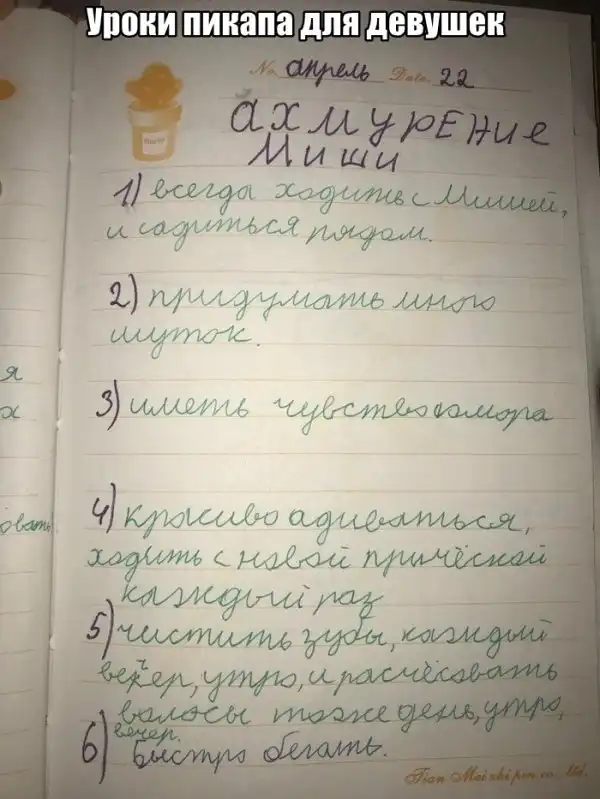 Уроки пикапа для девушек
No. апрель Date. 22
ахмурЕНие
Миши
1) всегда ходить с Мишей,
и садиться рядом.
2) придумать много
шуток.
3) иметь чувство юмора
я
х
4) красиво адиваться,
овать
ходить с новой причёской
каждый раз
5) чистить зубы, каждый
вечер, утро, и расчёсовать
валосы тоже день, утро,
вечер.
6) Быстро бегать.